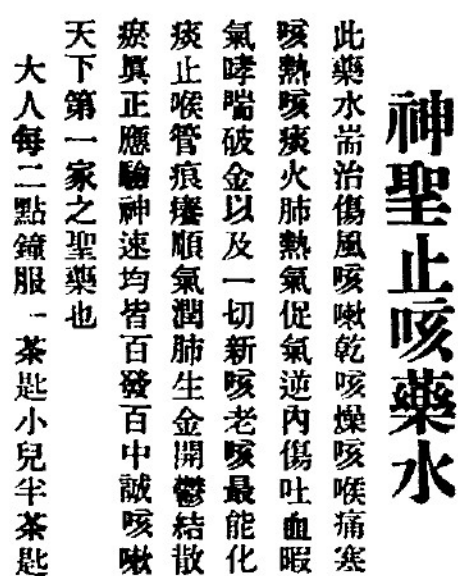 神聖止咳藥水
此藥水耑治傷風咳嗽乾咳燥咳喉痛塞
咳熱咳痰火肺熱氣促氣逆內傷吐血暇
氣哮喘破金以及一切新咳老咳最能化
痰止喉管痕癢順氣潤肺生金開鬱結散
瘀眞正應驗神速均皆百發百中誠咳嗽
天下第一家之聖藥也
大人每二點鐘服一茶匙小兒半茶匙